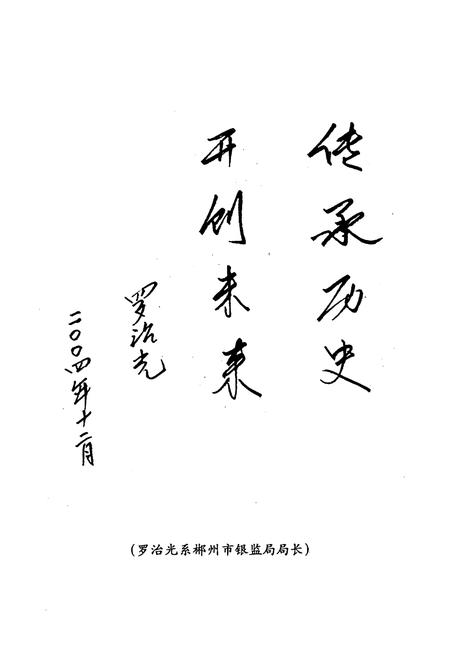 传承历史
开创未来
罗治光
二〇〇四年十二月
(罗治光系郴州市银监局局长)